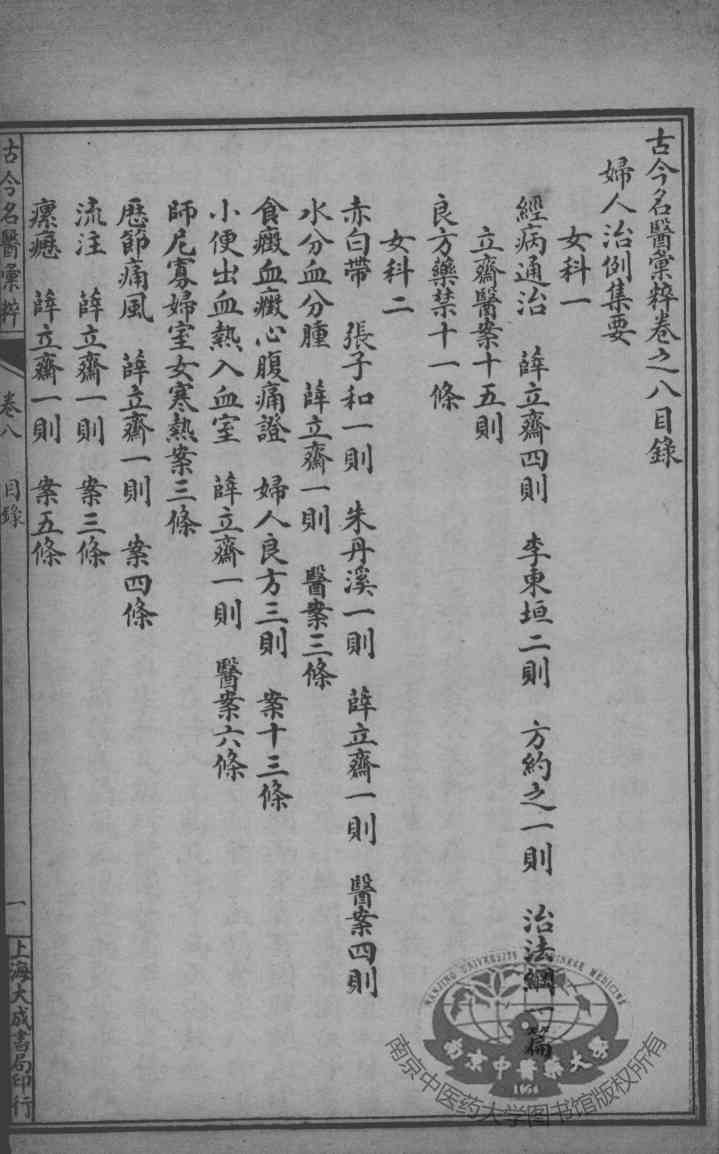 古今名醫彙粹卷之八目錄
婦人治例集要
女科一
經病通治　薛立齋四則　李東垣二則　方約之一則　治法綱一篇
立齋醫案十五則
良方藥禁十一條
女科二
赤白帶　張子和一則　朱丹溪一則　薛立齋一則　醫案四則
水分血分腫　薛立齋一則　醫案三條
食癥血癥心腹痛證　婦人良方三則　案十三條
小便出血熱入血室　薛立齋一則　醫案六條
師尼寡婦室女寒熱案三條
歷節痛風　薛立齋一則　案四條
流注　薛立齋一則　案三條
瘰癧　薛立齋一則　案五條
古今名醫彙粹　卷八　目錄　一　上海大成書局印行
NANJING UNIVERSITY CHINESE MEDICINE
南京中醫藥大學
1954
南京中医药大学图书馆版权所有